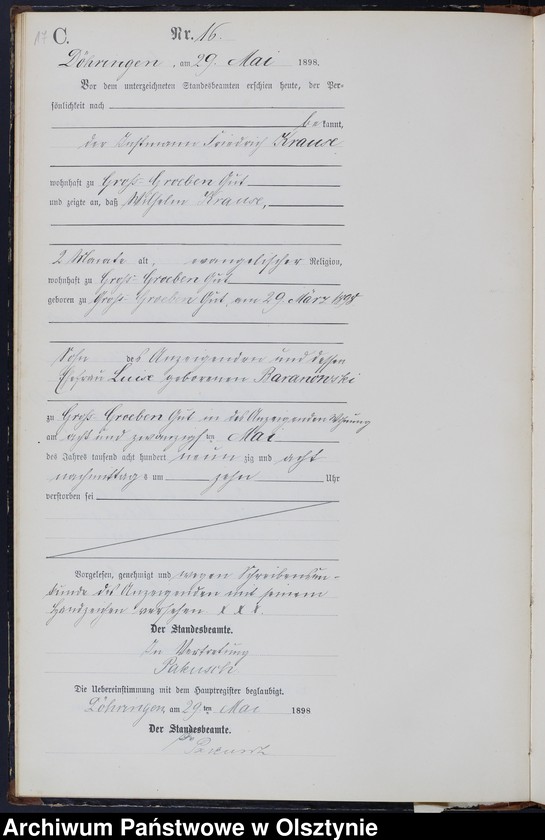 17 C. Nr. 16.
Döhringen, am 29. Mai 1898.
Vor dem unterzeichneten Standesbeamten erschien heute, der Per-
sönlichkeit nach
bekannt,
der Instmann Friedrich Krause
wohnhaft zu Groß-Groeben Gut
und zeigte an, daß Wilhelm Krause,
2 Monate alt, evangelischer Religion,
wohnhaft zu Groß-Groeben Gut
geboren zu Groß-Groeben Gut, am 29. März 1898
Sohn des Anzeigenden und dessen
Ehefrau Luise geborenen Baranowski
zu Groß Groeben Gut in des Anzeigenden Wohnung
am acht und zwanzigsten Mai
des Jahres tausend acht hundert neun zig und acht
nachmittags um zehn Uhr
verstorben sei
Vorgelesen, genehmigt und wegen Schreibensun-
kunde des Anzeigenden mit seinem
Handzeichen versehen x x x.
Der Standesbeamte.
In Vertretung
Die Uebereinstimmung mit dem Hauptregister beglaubigt.
Döhringen, am 29ten Mai 1898
Der Standesbeamte.
Archiwum Państwowe w Olsztynie